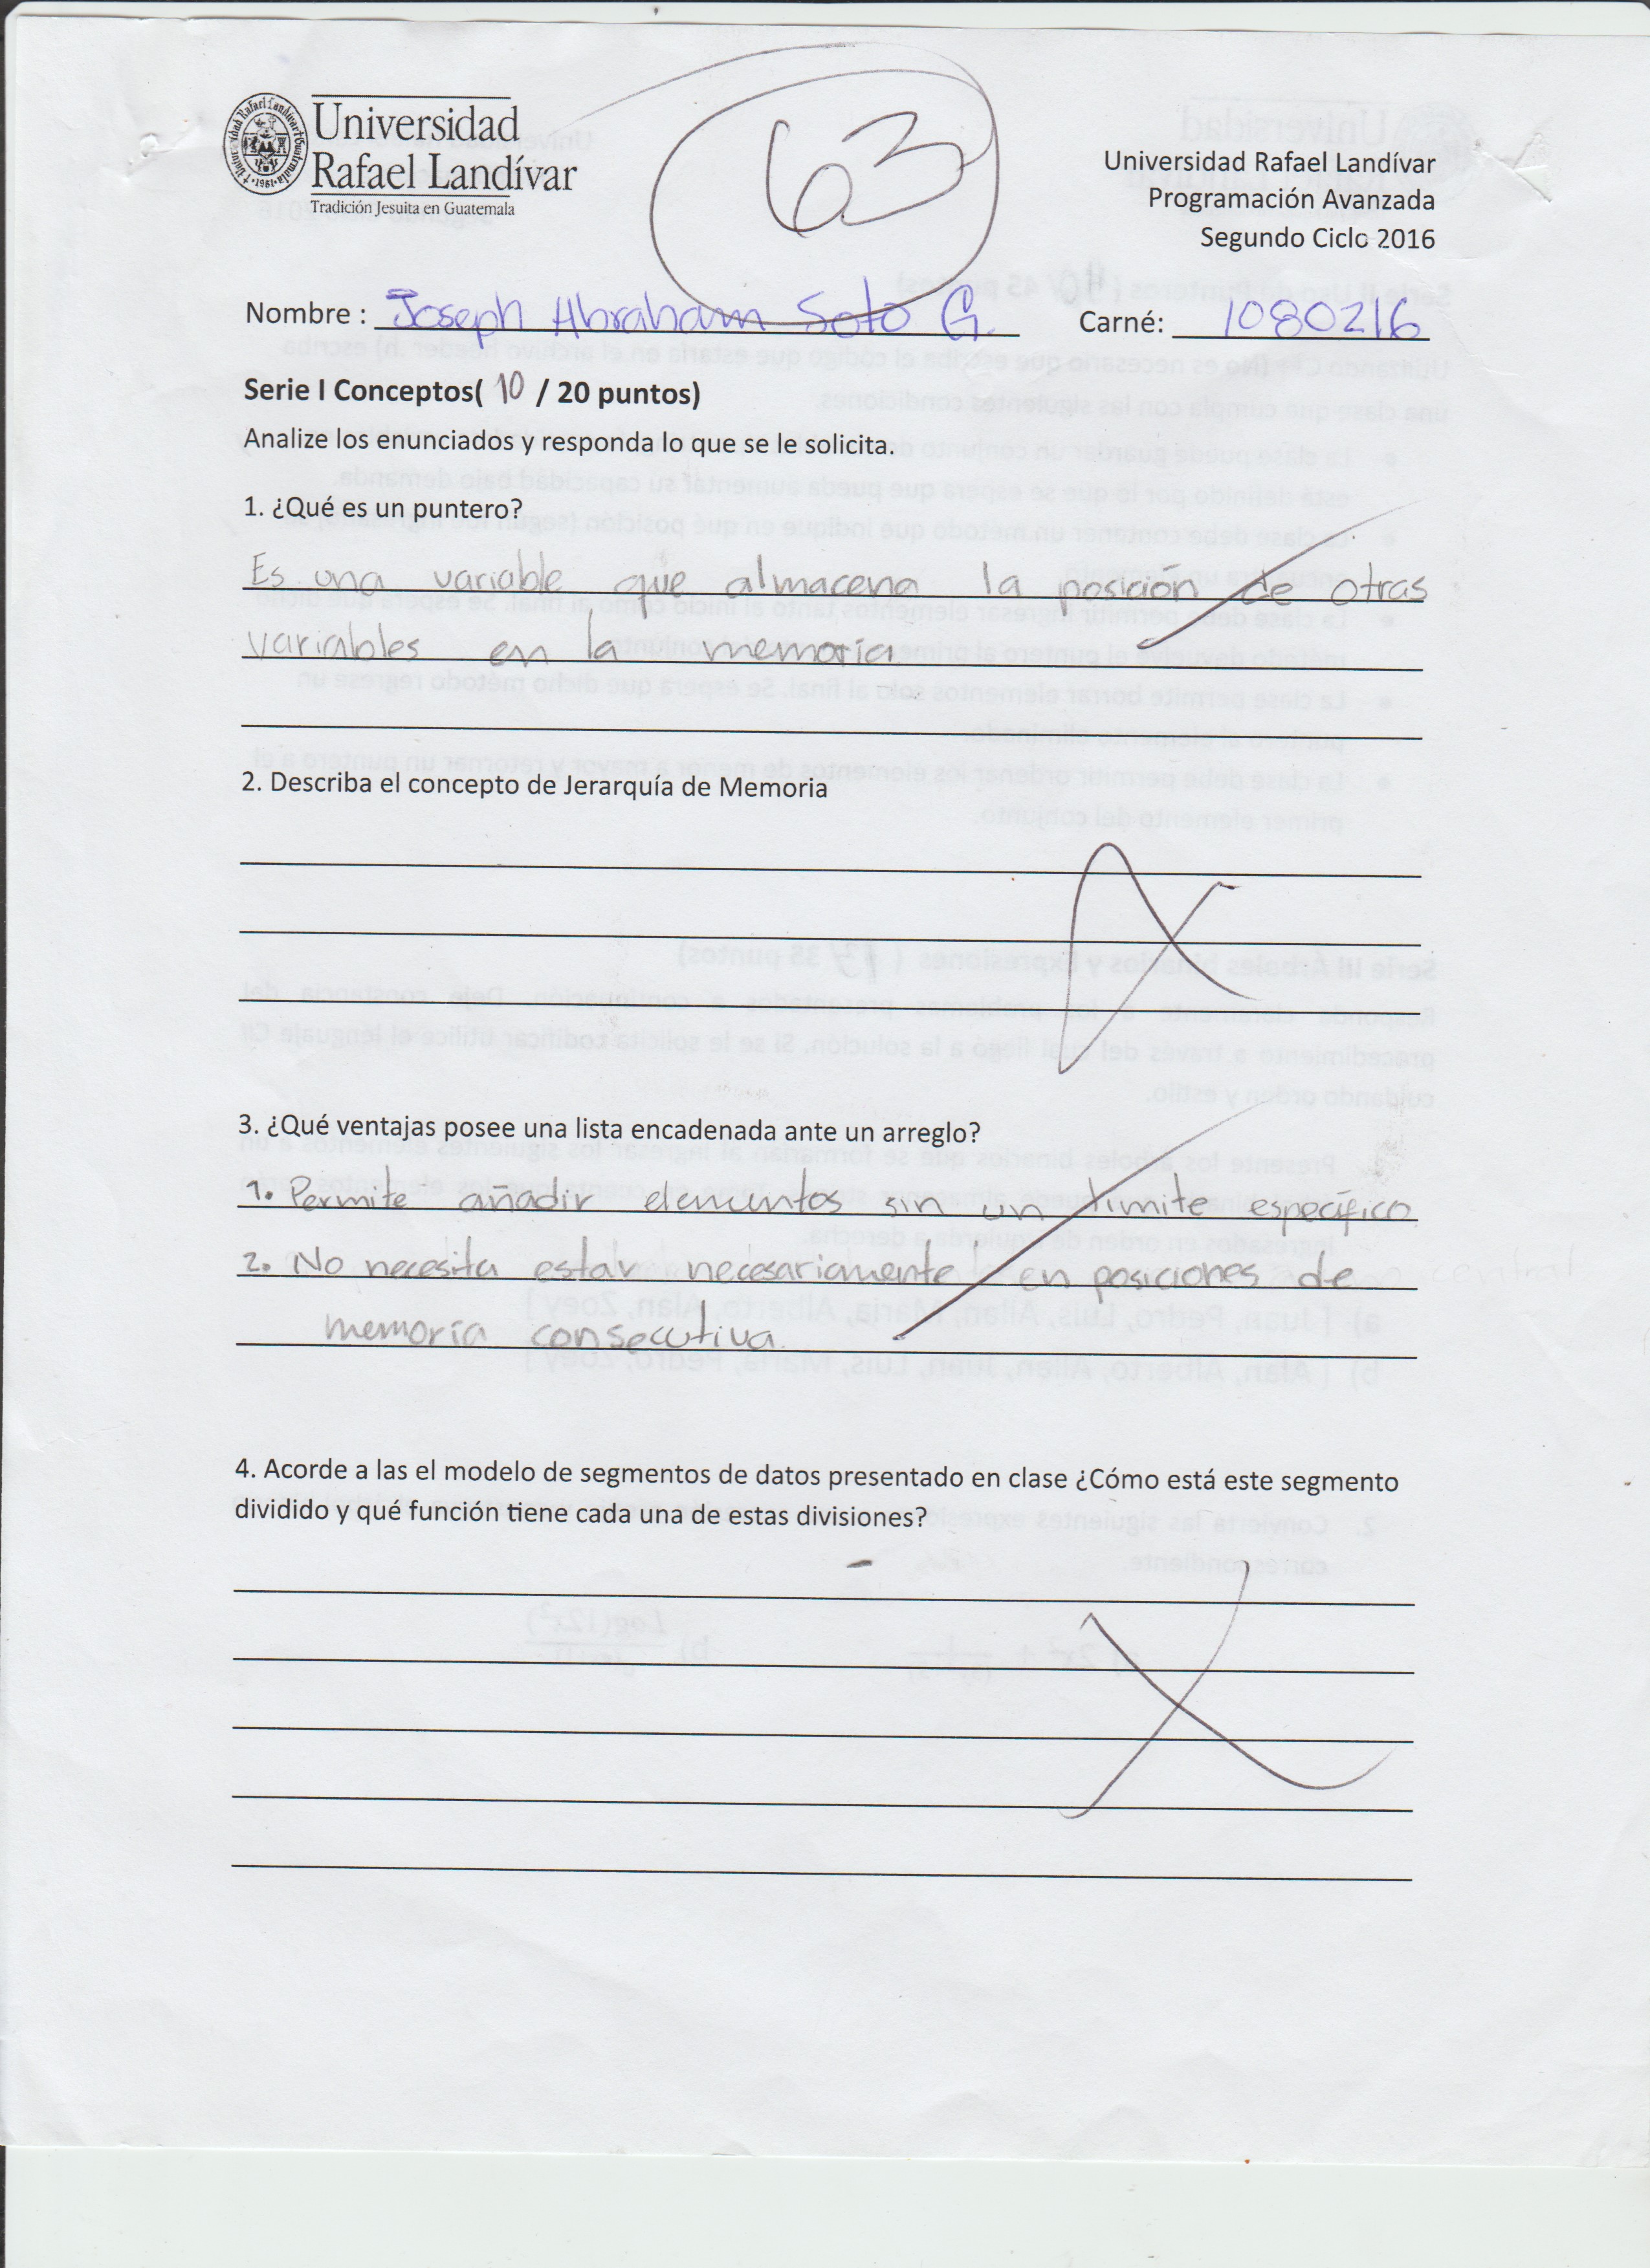 Universidad
Rafael Landívar
Tradición Jesuita en Guatemala
63
Universidad Rafael Landívar
Programación Avanzada
Segundo Ciclo 2016
Nombre : Joseph Abraham Soto G. Carné: 1080216
Serie I Conceptos( 10 / 20 puntos)
Analize los enunciados y responda lo que se le solicita.
1. ¿Qué es un puntero?
Es una variable que almacena la posición de otras
variables en la memoria.
2. Describa el concepto de Jerarquía de Memoria
3. ¿Qué ventajas posee una lista encadenada ante un arreglo?
1. Permite añadir elementos sin un limite específico.
2. No necesita estar necesariamente en posiciones de
memoria consecutiva.
4. Acorde a las el modelo de segmentos de datos presentado en clase ¿Cómo está este segmento
dividido y qué función tiene cada una de estas divisiones?